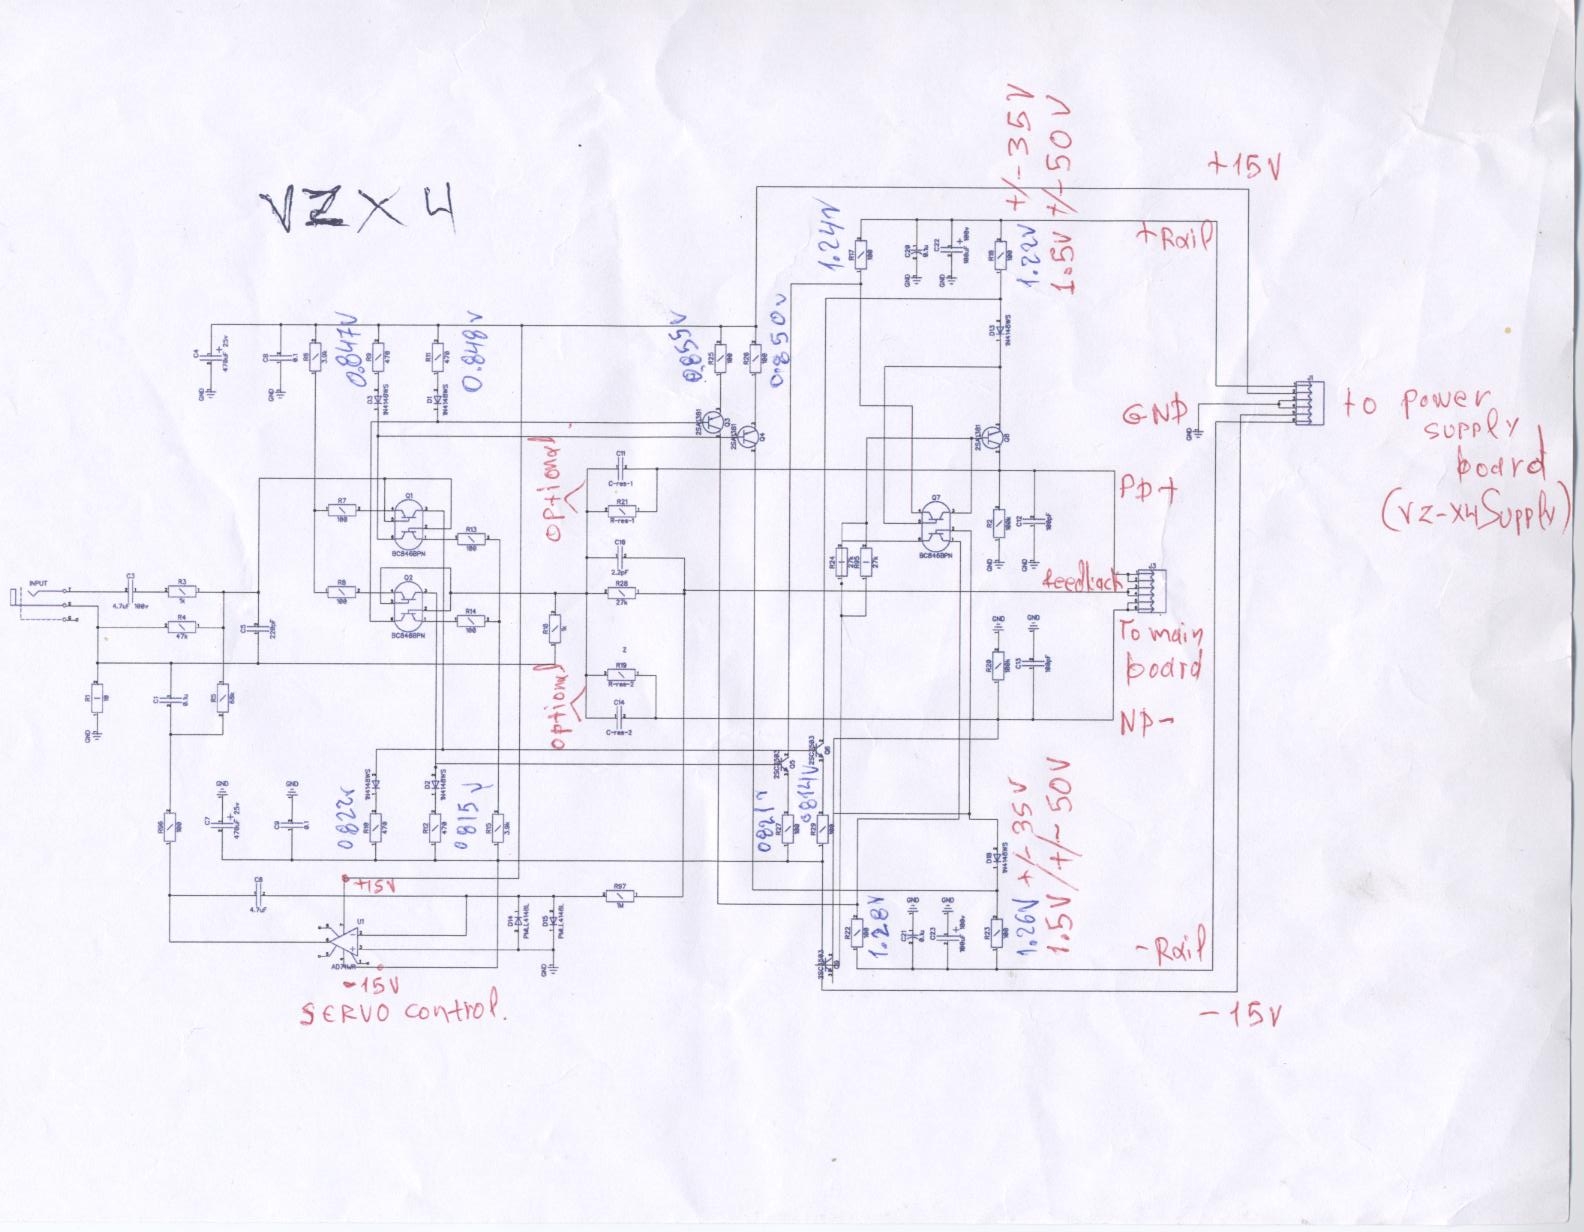 VZX4
+/-35V
1.5V +/-50V
+15V
+Rail
1.24V
R17
100
C20
0.1u
C22
100uF 100v
R18
100
1.22V
GND
GND
D13
1N4148WS
C4
470uF 25v
GND
C8
0.1
GND
R6
3.9k
0.847V
R9
470
D3
1N4148WS
R11
470
D1
1N4148WS
0.848V
0.855V
R25
100
R26
100
0.850v
2SA1381
Q3
2SA1381
Q4
2SA1381
Q8
J1
to power
supply
board
(VZ-X4Supply)
GND
GND
PP+
optional
C11
C-res-1
R21
R-res-1
C16
2.2pF
R28
27k
R7
100
Q1
BC846BPN
R13
100
R8
100
Q2
BC846BPN
R14
100
Q7
BC846BPN
R24
27k
27k
R2
100k
GND
C12
100pF
GND
INPUT
C3
4.7uF 100v
R3
1k
R4
47k
C5
220pF
R16
1k
feedback
J3
To main
board
GND
GND
R20
100k
C13
100pF
NP-
R1
10
GND
C1
0.1u
R5
68k
optional
2
R19
R-res-2
C14
C-res-2
2SC3503
Q5
2SC3503
Q6
0821v
R27
100
0814V
R29
100
R96
100
GND
C7
470uF 25v
GND
C9
0.1
0822v
R10
470
1N4148WS
D2
1N4148WS
R12
470
0815V
R15
3.9k
D18
1N4148WS
1.26V +/-35V
1.5V/+/-50V
+15V
C6
4.7uF
U1
AD711JR
-15V
SERVO control.
D14
PMLL4148L
D15
PMLL4148L
GND
R97
1M
R22
100
1.28V
GND
C21
0.1u
GND
C23
100uF 100v
R23
100
2SC3503
-Rail
-15V